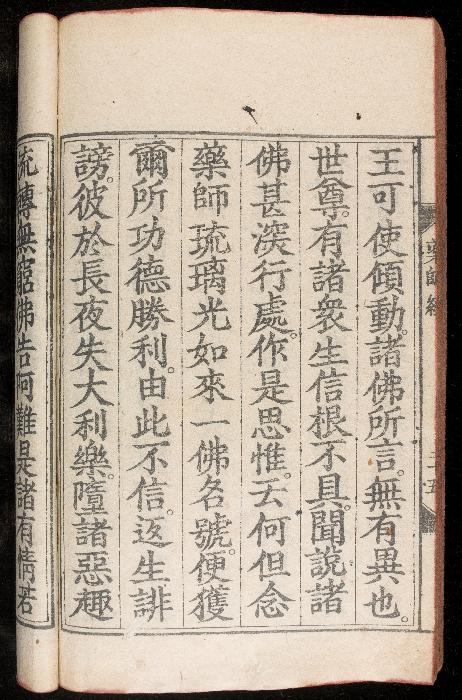 藥師經
王可使傾動。諸佛所言。無有異也。
世尊。有諸衆生信根不具。聞說諸
佛甚深行處。作是思惟。云何但念
藥師琉璃光如來一佛名號。便獲
爾所功德勝利。由此不信。返生誹
謗。彼於長夜失大利樂。墮諸惡趣
流轉無窮佛告阿難是諸有情若